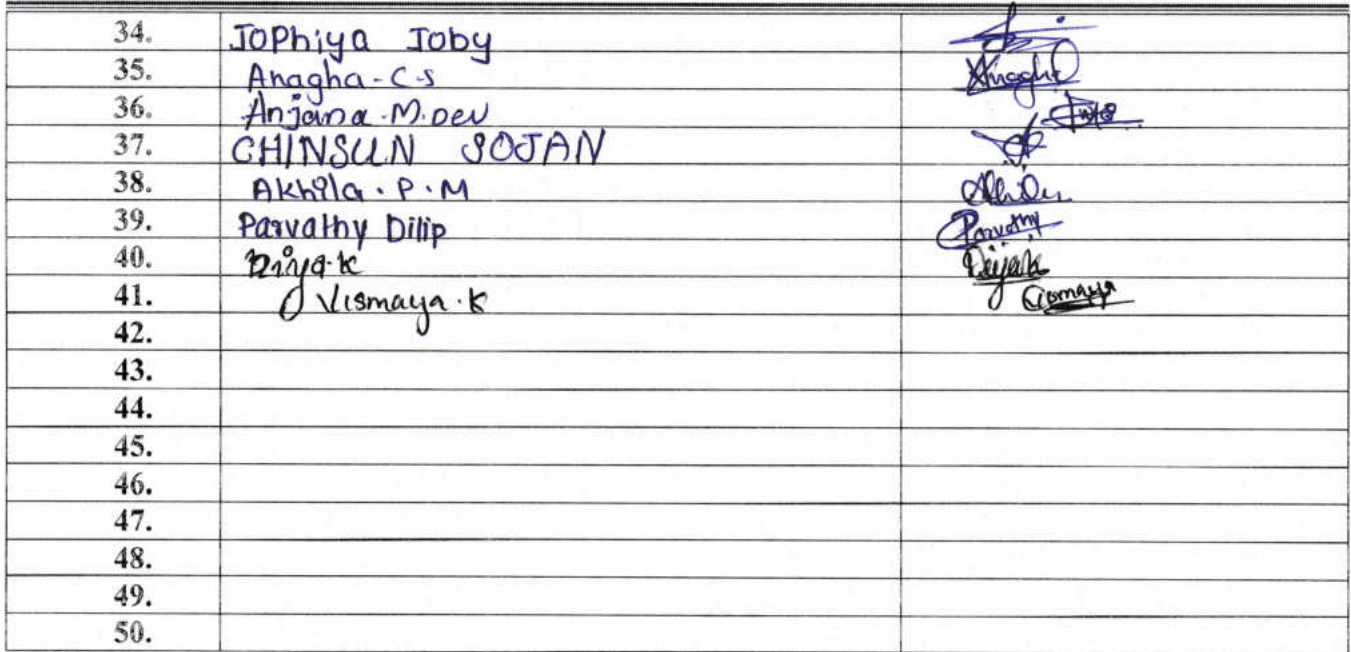 34. Jophiya Joby
35. Anagha-C-S Anagha
36. Anjana.M.Dev
37. CHINSUN SOJAN
38. Akhila.P.M Akhila
39. Parvathy Dilip Parvathy
40. Diya.K Diya.k
41. Vismaya.K Vismaya
42.
43.
44.
45.
46.
47.
48.
49.
50.